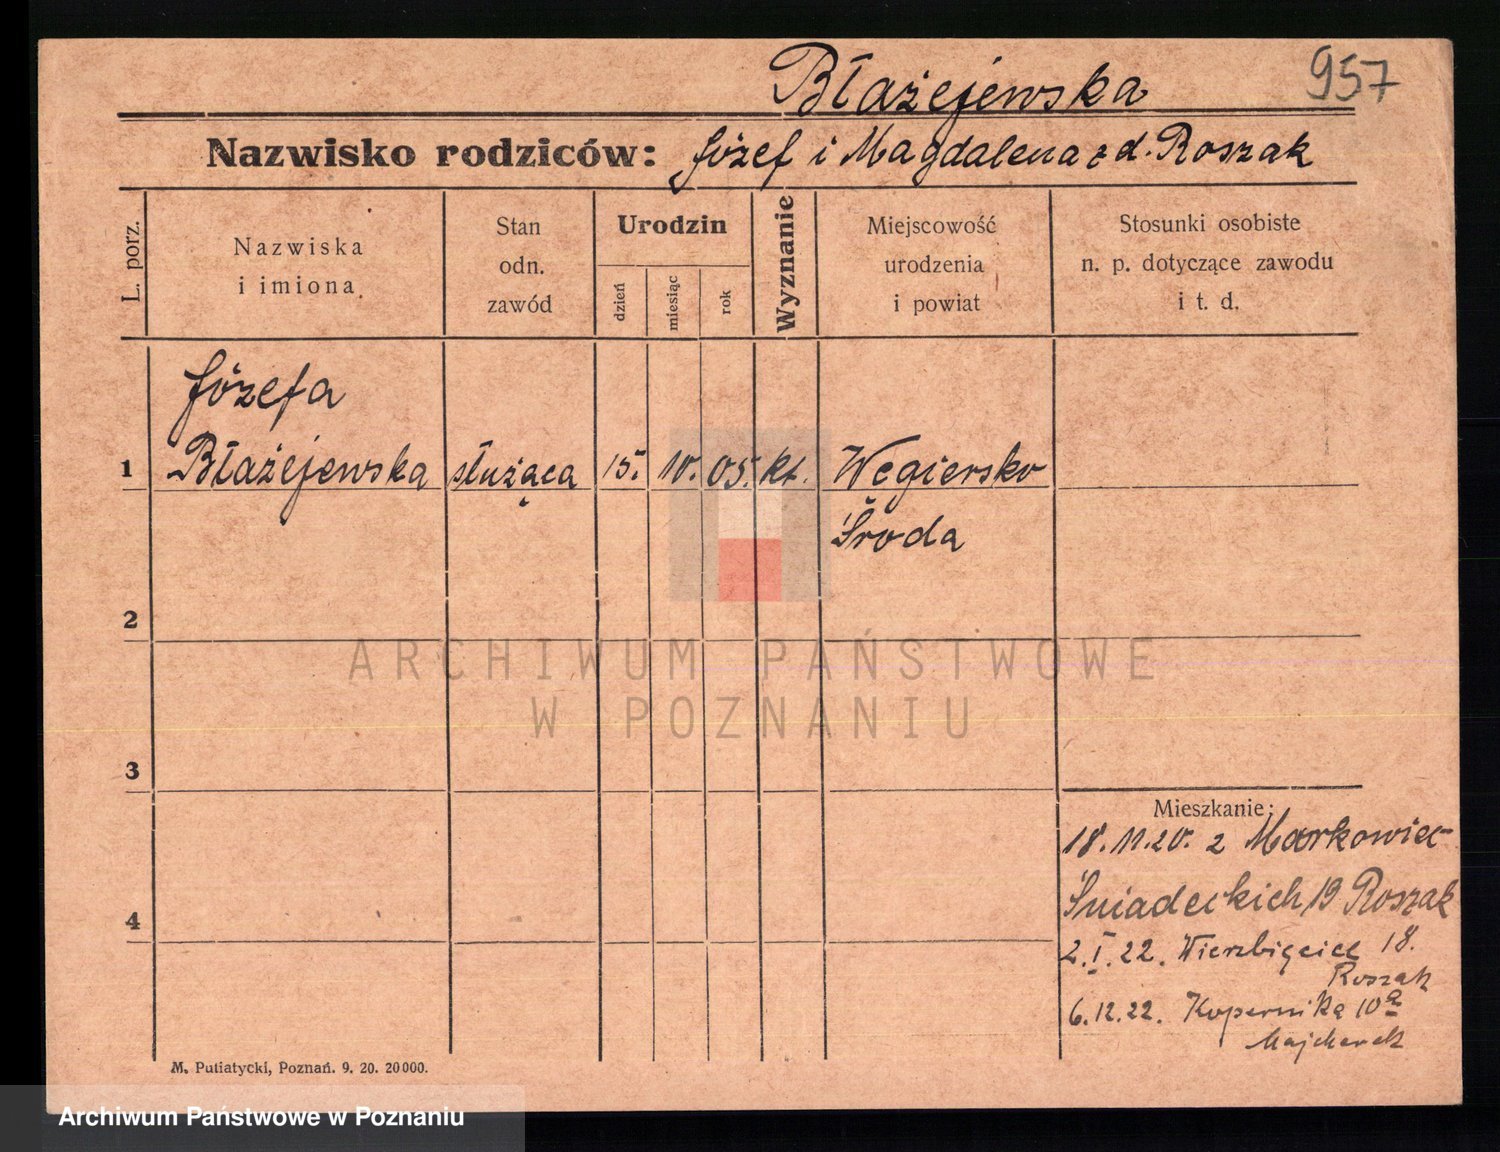 Błażejewska 957
Nazwisko rodziców: Józef i Magdalena z d. Roszak
L. porz.
Nazwiska
i imiona
Stan
odn.
zawód
Urodzin
dzień
miesiąc
rok
Wyznanie
Miejscowość
urodzenia
i powiat
Stosunki osobiste
n. p. dotyczące zawodu
i t. d.
Józefa
1 Błażejewska służąca 15. 10. 05. kt. Węgiersko
Środa
2
ARCHIWUM PAŃSTWOWE
W POZNANIU
3
Mieszkanie:
18.11.20. z Markowic
Śniadeckich 19 Roszak
4
2.I.22. Wierzbięcice 18.
Roszak
6.12.22. Kopernika 10a
Majcherek
M. Putiatycki, Poznań. 9. 20. 20000.
Archiwum Państwowe w Poznaniu